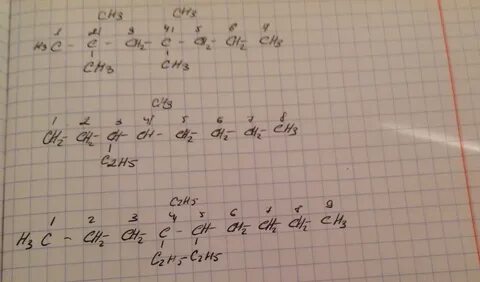 CH₃ CH₃
1 2 3 4 5 6 7
H₃C - C - CH₂ - C - CH₂ - CH₂ - CH₃
CH₃ CH₃
CH₃
1 2 3 4 5 6 7 8
CH₂ - CH₂ - CH - CH - CH₂ - CH₂ - CH₂ - CH₃
C₂H₅
C₂H₅
1 2 3 4 5 6 7 8 9
H₃C - CH₂ - CH₂ - C - CH - CH₂ - CH₂ - CH₂ - CH₃
C₂H₅ C₂H₅